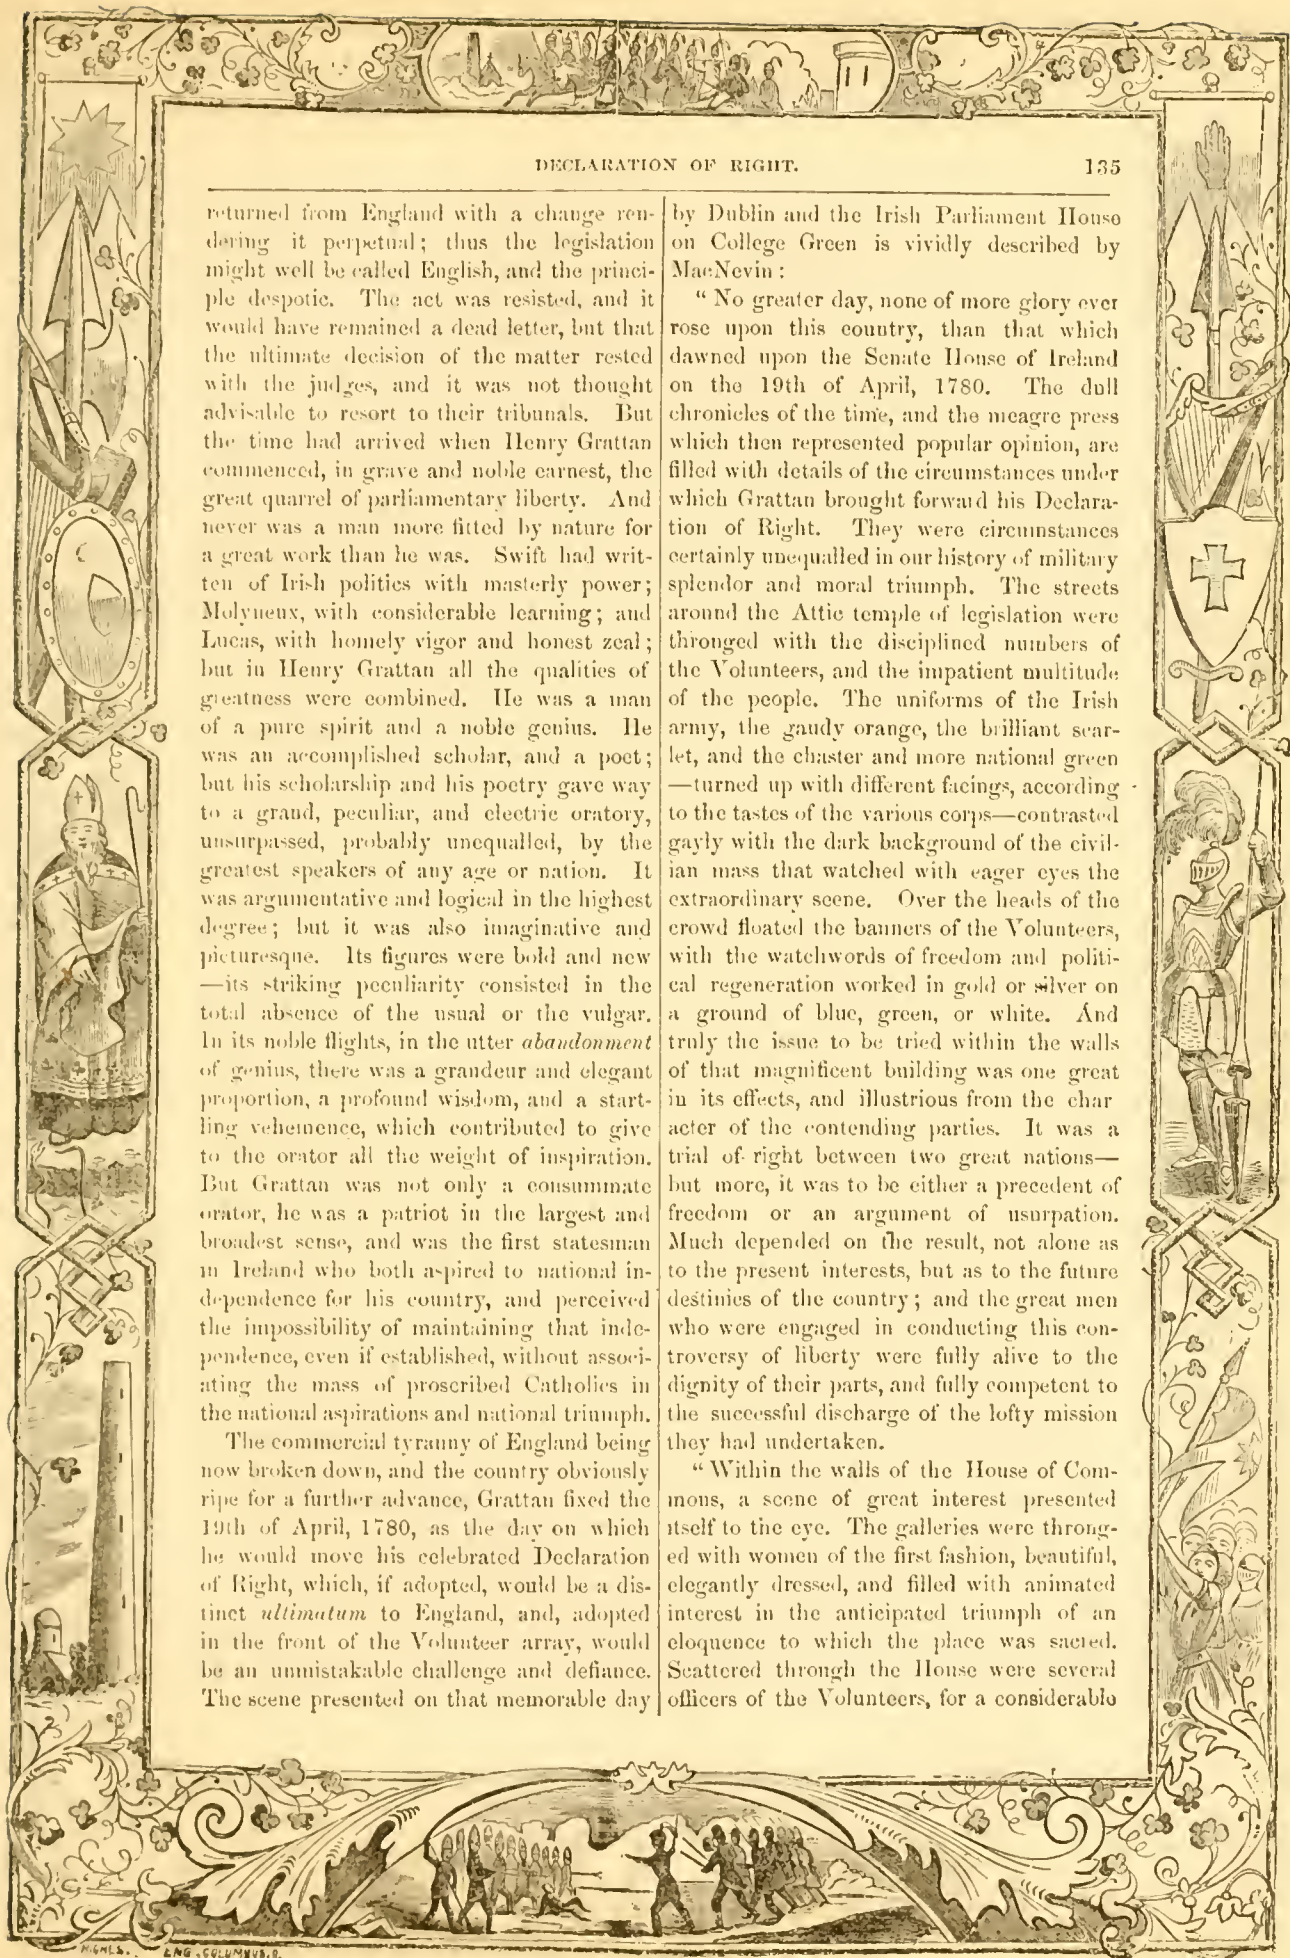 DECLARATION OF RIGHT.
135
returned from England with a change ren-
dering it perpetual; thus the legislation
might well be called English, and the princi-
ple despotic. The act was resisted, and it
would have remained a dead letter, but that
the ultimate decision of the matter rested
with the judges, and it was not thought
advisable to resort to their tribunals. But
the time had arrived when Henry Grattan
commenced, in grave and noble earnest, the
great quarrel of parliamentary liberty. And
never was a man more fitted by nature for
a great work than he was. Swift had writ-
ten of Irish politics with masterly power;
Molyneux, with considerable learning; and
Lucas, with homely vigor and honest zeal;
but in Henry Grattan all the qualities of
greatness were combined. He was a man
of a pure spirit and a noble genius. He
was an accomplished scholar, and a poet;
but his scholarship and his poetry gave way
to a grand, peculiar, and electric oratory,
unsurpassed, probably unequalled, by the
greatest speakers of any age or nation. It
was argumentative and logical in the highest
degree; but it was also imaginative and
picturesque. Its figures were bold and new
—its striking peculiarity consisted in the
total absence of the usual or the vulgar.
In its noble flights, in the utter abandonment
of genius, there was a grandeur and elegant
proportion, a profound wisdom, and a start-
ling vehemence, which contributed to give
to the orator all the weight of inspiration.
But Grattan was not only a consummate
orator, he was a patriot in the largest and
broadest sense, and was the first statesman
in Ireland who both aspired to national in-
dependence for his country, and perceived
the impossibility of maintaining that inde-
pendence, even if established, without associ-
ating the mass of proscribed Catholics in
the national aspirations and national triumph.
The commercial tyranny of England being
now broken down, and the country obviously
ripe for a further advance, Grattan fixed the
19th of April, 1780, as the day on which
he would move his celebrated Declaration
of Right, which, if adopted, would be a dis-
tinct ultimatum to England, and, adopted
in the front of the Volunteer array, would
be an unmistakable challenge and defiance.
The scene presented on that memorable day
by Dublin and the Irish Parliament House
on College Green is vividly described by
MacNevin:
“ No greater day, none of more glory ever
rose upon this country, than that which
dawned upon the Senate House of Ireland
on the 19th of April, 1780. The dull
chronicles of the time, and the meagre press
which then represented popular opinion, are
filled with details of the circumstances under
which Grattan brought forward his Declara-
tion of Right. They were circumstances
certainly unequalled in our history of military
splendor and moral triumph. The streets
around the Attic temple of legislation were
thronged with the disciplined numbers of
the Volunteers, and the impatient multitude
of the people. The uniforms of the Irish
army, the gaudy orange, the brilliant scar-
let, and the chaster and more national green
—turned up with different facings, according
to the tastes of the various corps—contrasted
gayly with the dark background of the civil-
ian mass that watched with eager eyes the
extraordinary scene. Over the heads of the
crowd floated the banners of the Volunteers,
with the watchwords of freedom and politi-
cal regeneration worked in gold or silver on
a ground of blue, green, or white. And
truly the issue to be tried within the walls
of that magnificent building was one great
in its effects, and illustrious from the char
acter of the contending parties. It was a
trial of right between two great nations—
but more, it was to be either a precedent of
freedom or an argument of usurpation.
Much depended on the result, not alone as
to the present interests, but as to the future
destinies of the country; and the great men
who were engaged in conducting this con-
troversy of liberty were fully alive to the
dignity of their parts, and fully competent to
the successful discharge of the lofty mission
they had undertaken.
“ Within the walls of the House of Com-
mons, a scene of great interest presented
itself to the eye. The galleries were throng-
ed with women of the first fashion, beautiful,
elegantly dressed, and filled with animated
interest in the anticipated triumph of an
eloquence to which the place was sacred.
Scattered through the House were several
officers of the Volunteers, for a considerable
ENG. COLUMBUS. O.